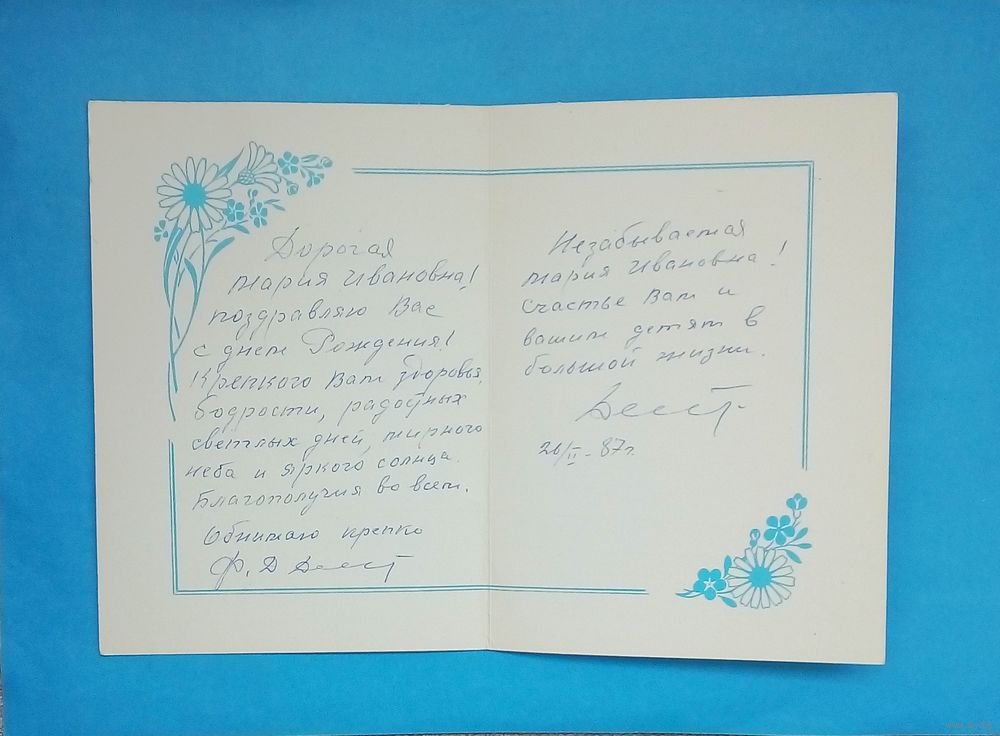 Дорогая
Мария Ивановна!
поздравляю Вас
с днем Рождения!
Крепкого Вам здоровья,
бодрости, радостных
светлых дней, мирного
неба и яркого солнца.
Благополучия во всем.
Обнимаю крепко
Ф. Д
Незабываемая
Мария Ивановна!
Счастье Вам и
вашим детям в
большой жизни.
26/II-87г.